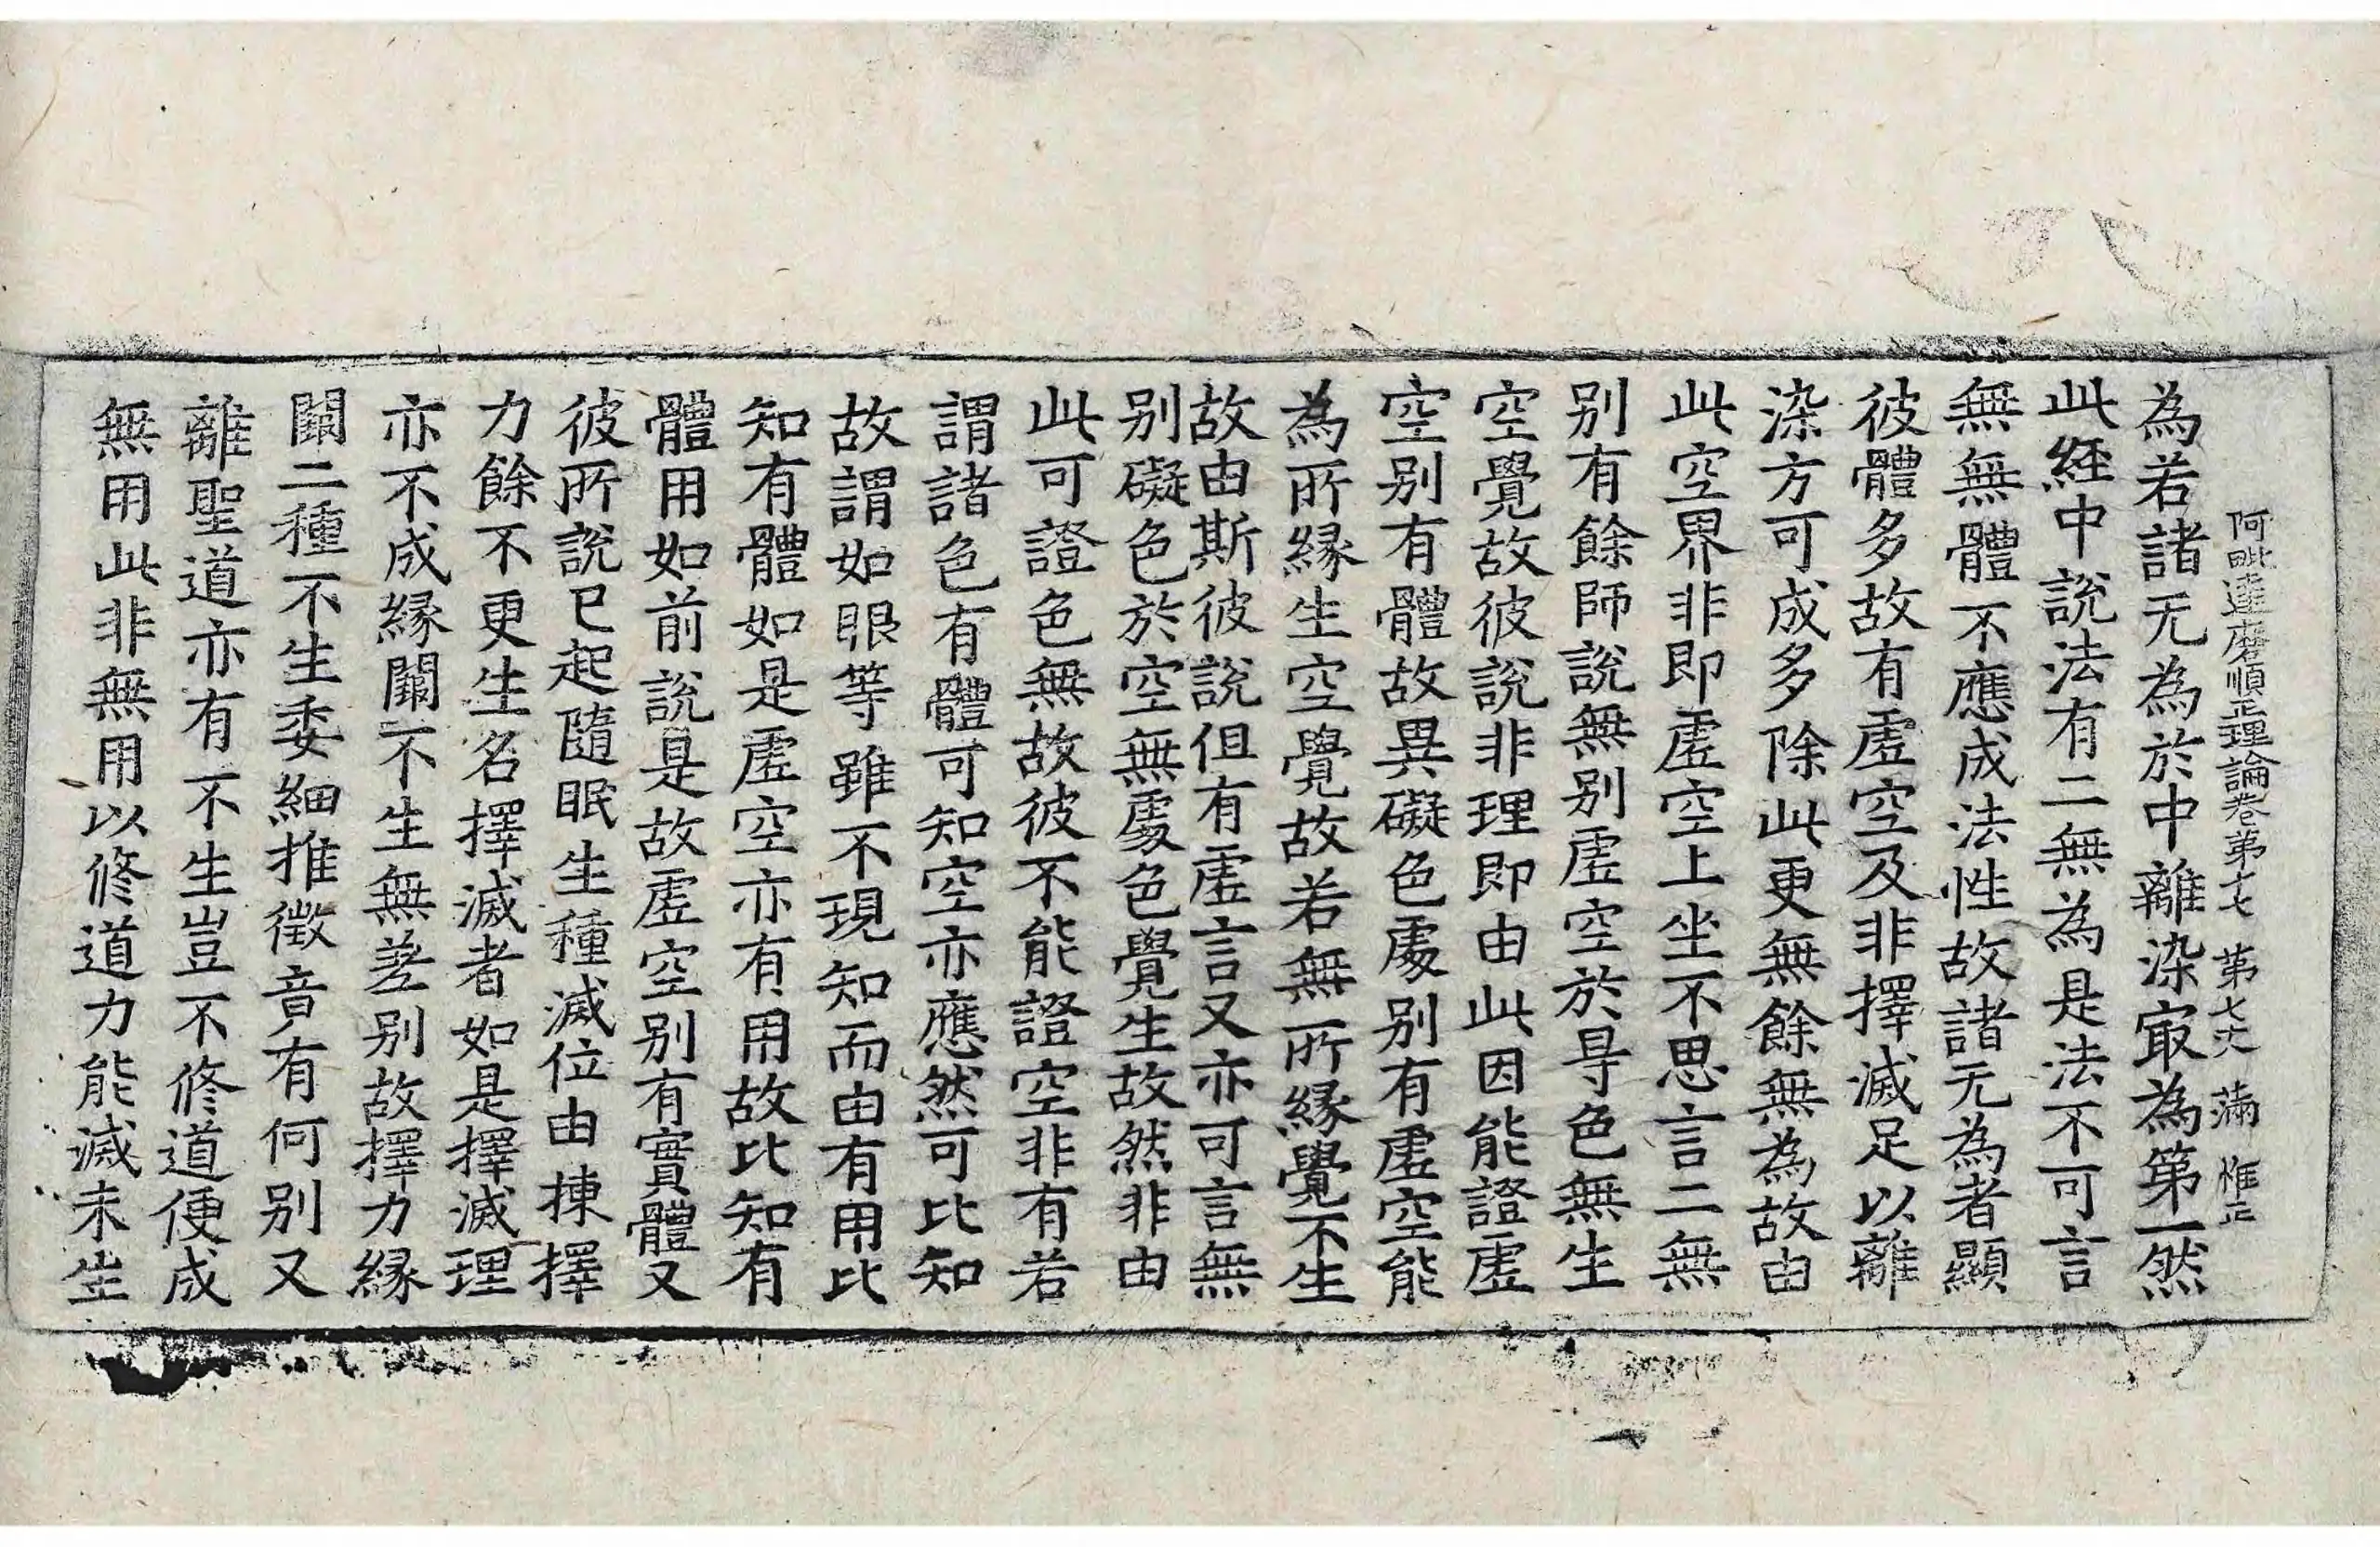 阿毗達磨順正理論卷第十七 第七丈 滿 惟正
為若諸无為於中離染㝡為第一然
此経中說法有二無為是法不可言
無無體不應成法性故諸无為者顯
彼體多故有虛空及非擇滅足以離
染方可成多除此更無餘無為故由
此空界非即虛空上坐不思言二無
別有餘師說無別虛空於㝵色無生
空覺故彼說非理即由此因能證虛
空別有體故異礙色處別有虛空能
為所緣生空覺故若無所緣覺不生
故由斯彼說但有虛言又亦可言無
別礙色於空無處色覺生故然非由
此可證色無故彼不能證空非有若
謂諸色有體可知空亦應然可比知
故謂如眼等雖不現知而由有用比
知有體如是虛空亦有用故比知有
體用如前說是故虛空別有實體又
彼所說已起隨眠生種滅位由揀擇
力餘不更生名擇滅者如是擇滅理
亦不成緣闕不生無差別故擇力緣
闕二種不生委細推徵竟有何別又
離聖道亦有不生豈不修道便成
無用此非無用以修道力能滅未生